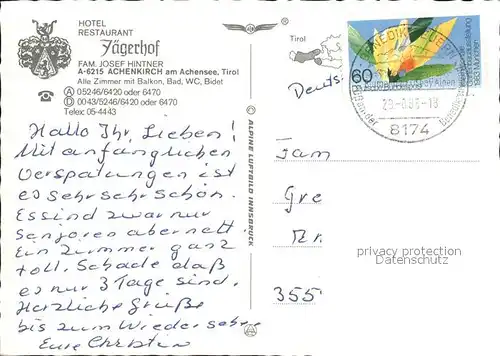 HOTEL
RESTAURANT
Jägerhof
FAM. JOSEF HINTNER
A-6215 ACHENKIRCH am Achensee, Tirol
Alle Zimmer mit Balkon, Bad, WC, Bidet
☎ Ⓐ 05246/6420 oder 6470
Ⓓ 0043/5246/6420 oder 6470
Telex: 05-4443
Hallo Ihr Lieben!
Mit anfänglichen
Verspätungen ist
es sehr sehr schön.
Es sind zwar nur
Senioren aber nett
Ein Zimmer ganz
toll. Schade daß
es nur 3 Tage sind.
Herzliche Grüße
bis zum Wiedersehen
Eure Christin
© ALPINE LUFTBILD INNSBRUCK
Tirol
60
8174
Fam
Gre
355
privacy protection
Datenschutz